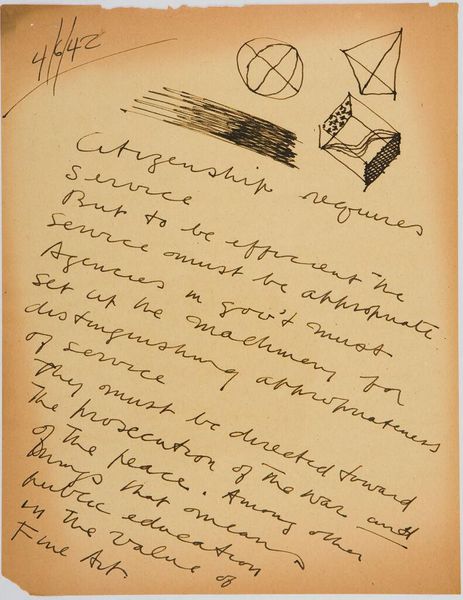 4/6/42
Citizenship requires
service
But to be efficient the
service must be appropriate
Agencies in gov't must
set up the machinery for
distinguishing appropriateness
of service
They must be directed toward
The prosecution of the war and
of the peace. Among other
things that means
public education
in the value of
Fine Art.